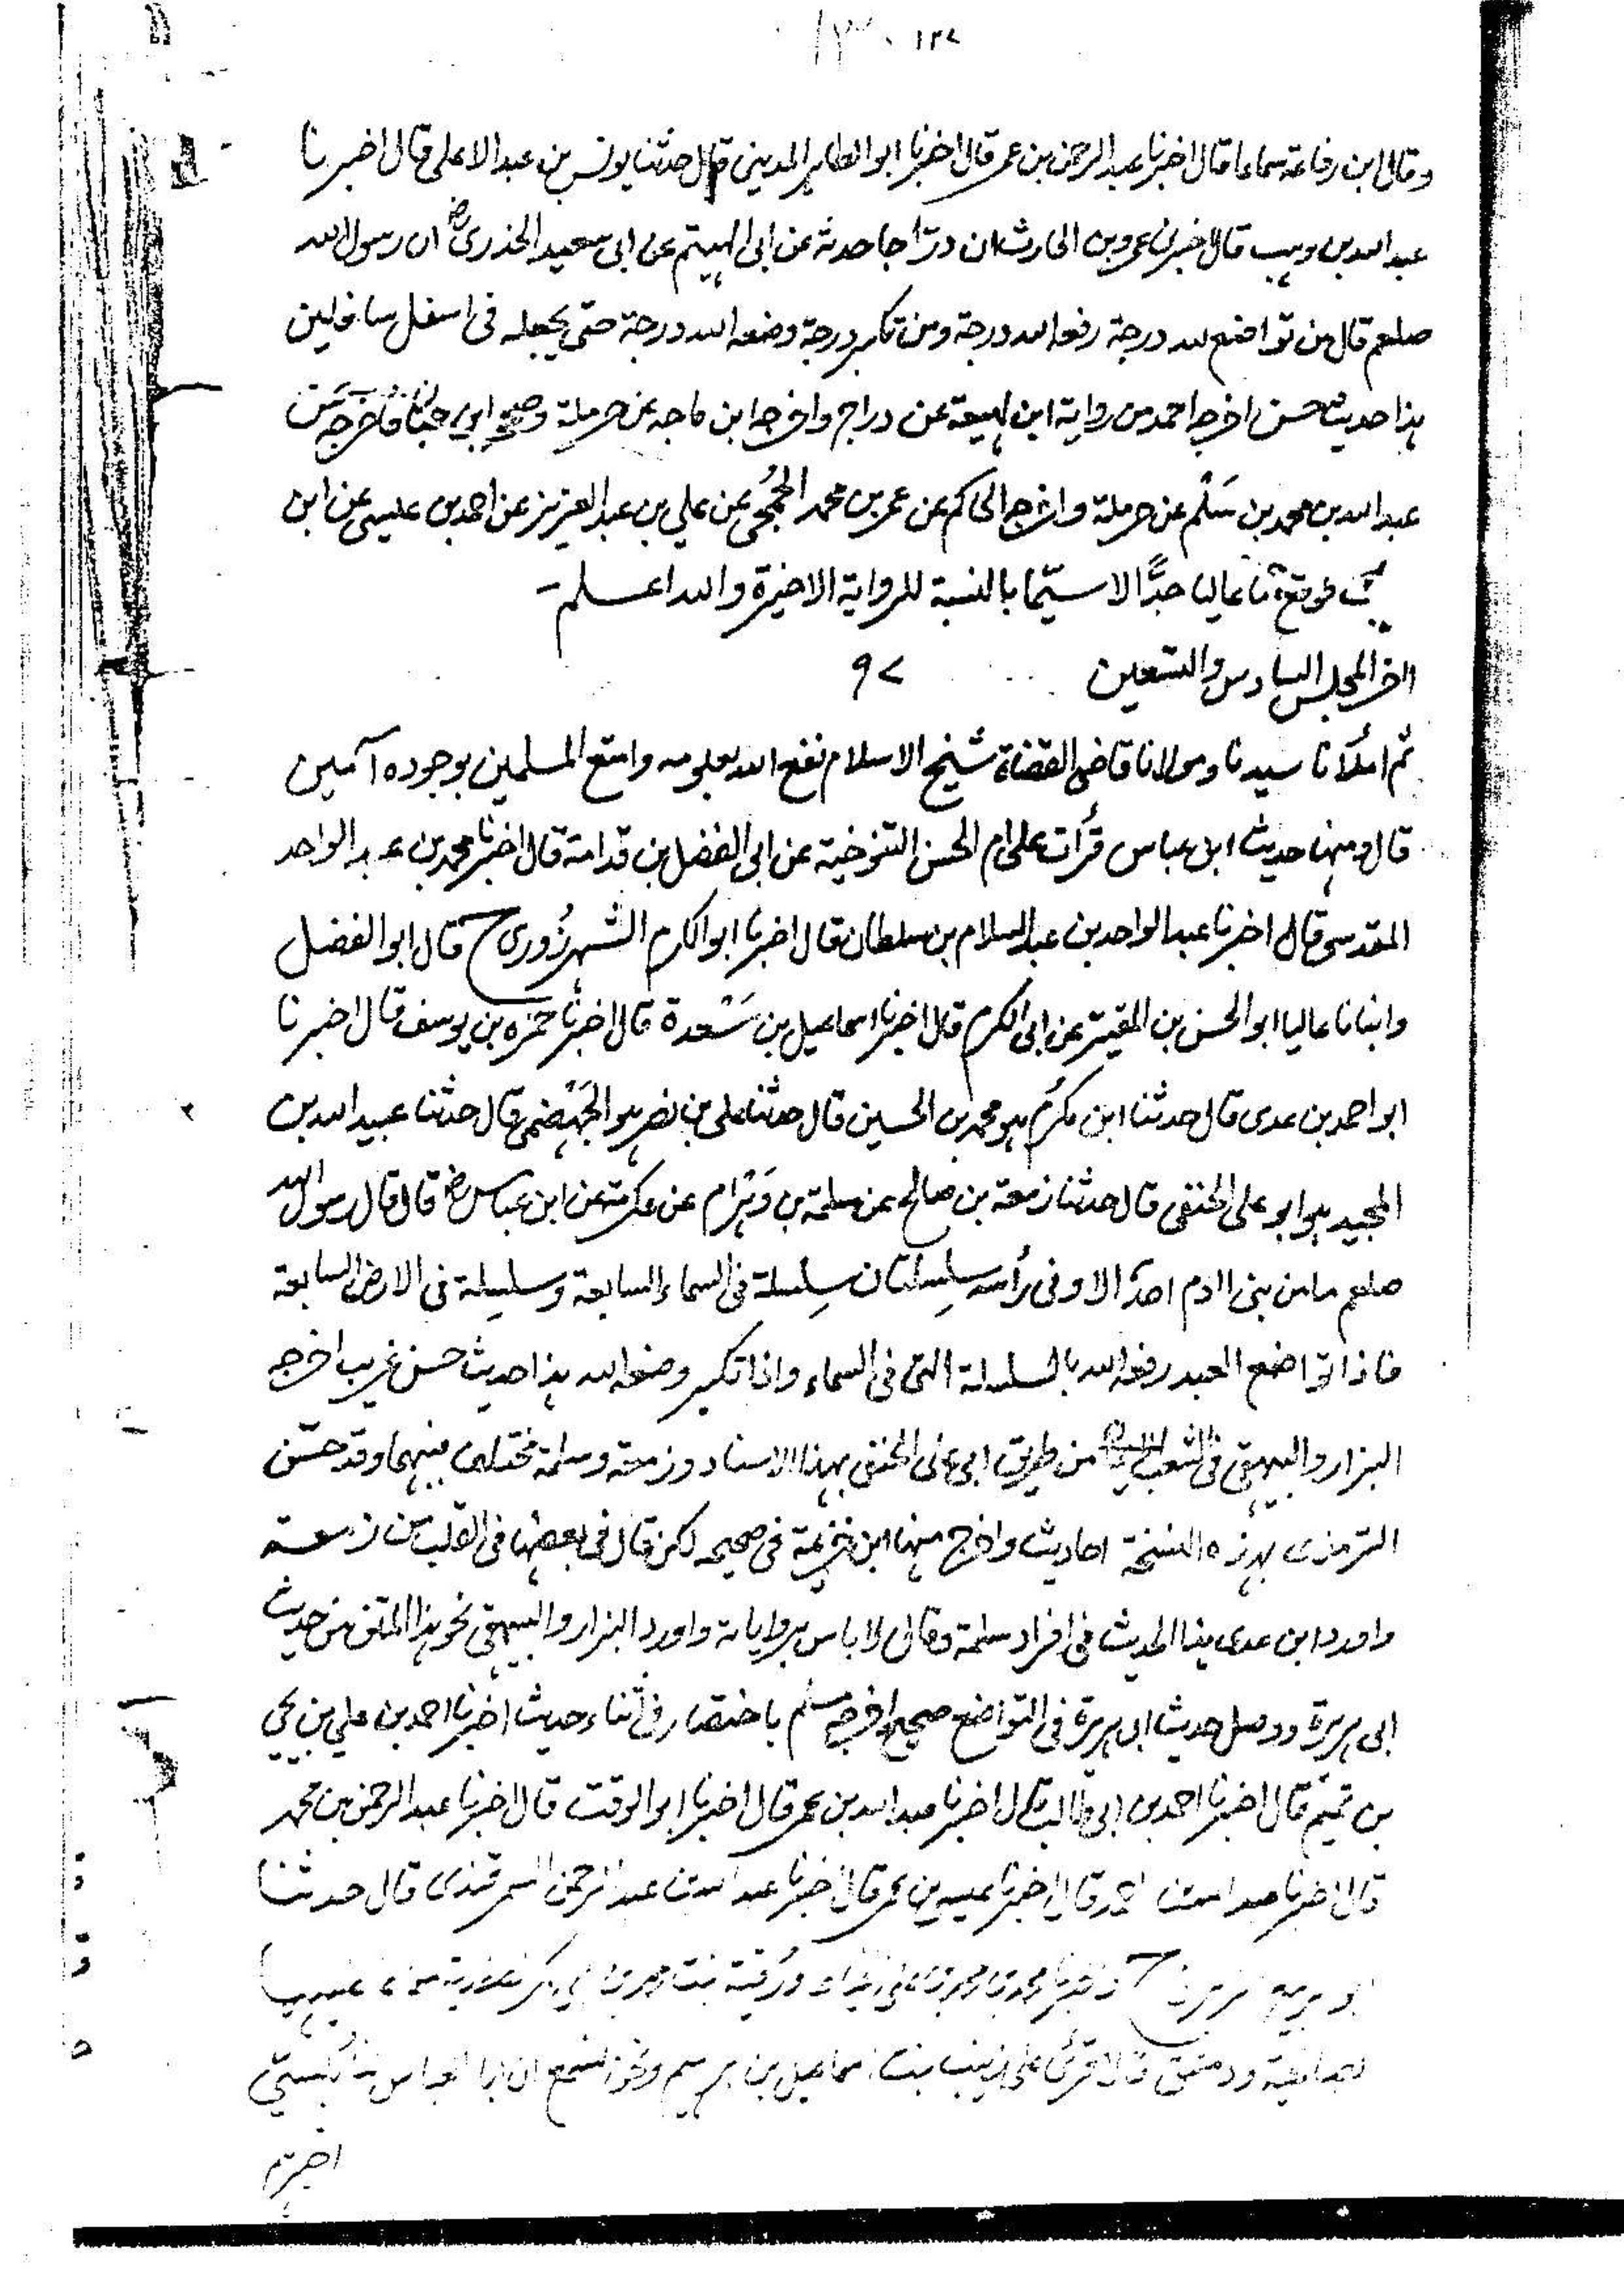 ١٢٧ ١٣٠
وقال ابن رفاعة سماعا قال اخبرنا عبد الرحمن بن عمر قال اخبرنا ابو الطاهر المديني قال حدثنا يونس بن عبد الاعلى قال اخبرنا
عبد الله بن وهب قال اخبرني عمرو بن الحارث ان درّاجا حدثه عن ابى الهيثم عن ابى سعيد الخدرى رض ان رسول الله
صلعم قال من تواضع لله درجة رفعه الله درجة ومن تكبر درجة وضعه الله درجة حتى يجعله فى اسفل سافلين
هذا حديث حسن اخرجه احمد من رواية ابن لهيعة عن دراج واخرجه ابن ماجه عن حرملة وصححه ابن حبان فاخرجه عن
عبد الله بن محمد بن سَلْم عن حرملة واخرجه الحاكم عن عمر بن محمد الجُمَحي عن علي بن عبد العزيز عن احمد بن عيسى عن ابن
وهب فوقع لنا عاليا جدًّا لا سيّما بالنسبة للرواية الاخيرة والله اعلم
اخر المجلس السادس والتسعين ٩٧
ثم املأنا سيدنا ومولانا قاضى القضاة شيخ الاسلام نفع الله بعلومه وامتع المسلمين بوجوده آمين
قال ومنها حديث ابن عباس قرأت على ام الحسن التنوخية عن ابى الفضل بن قدامة قال اخبرنا محمد بن عبد الواحد
المقدسى قال اخبرنا عبد الواحد بن عبد السلام بن سلطان قال اخبرنا ابو الكرم الشهرزُورى ح قال ابو الفضل
وانبانا عاليا ابو الحسن بن المقيّر عن ابى الكرم قال اخبرنا اسماعيل بن مَسْعدة قال اخبرنا حمزه بن يوسف قال اخبرنا
ابو احمد بن عدى قال حدثنا ابن مكرم هو محمد بن الحسين قال حدثنا على بن نصر هو الجَهْضمى قال حدثنا عبيد الله بن
المجيد هو ابو على الحنفى قال حدثنا زمعة بن صالح عن سلمة بن وَهْرام عن عكرمة عن ابن عباس رض قال قال رسول الله
صلعم ما من بنى اادم احد الا وفى رأسه سلسلتان سِلسلة فى السماء السابعة وسلسلة فى الارض السابعة
فاذا تواضع العبد رفعه الله بالسلسلة التى فى السماء واذا تكبر وضعه الله هذا حديث حسن غريب اخرجه
البزار والبيهقى فى الشعب من طريق ابى على الحنفى بهذا الاسناد وزمعة وسلمة مختلف فيهما وقد حسّن
الترمذى بهذه النسخة احاديث واخرج منها ابن خزيمة فى صحيحه لكن قال فى بعضها فى القلب من زمعة
واورد ابن عدى هذا الحديث فى افراد سلمة وقال لا باس برواياته واورد البزار والبيهقى نحو هذا المتن من حديث
ابى هريرة وصل حديث ابى هريرة فى التواضع صحيح اخرجه مسلم باختصار فى اثناء حديث اخبرنا احمد بن علي بن يحيي
بن تميم قال اخبرنا احمد بن ابى طالب قال اخبرنا عبد الله بن عمر قال اخبرنا ابو الوقت قال اخبرنا عبد الرحمن بن محمد
قال اخبرنا عبد الله بن احمد قال اخبرنا عيسى بن عمر قال اخبرنا عبد الله بن عبد الرحمن السمرقندى قال حدثنا
ح محمد بن محمد بن على ورُقية بنت
ودمشق قال قرئ على زينب بنت اسماعيل بن ابرهيم ونحن نسمع ان ابا العباس
اخبرهم